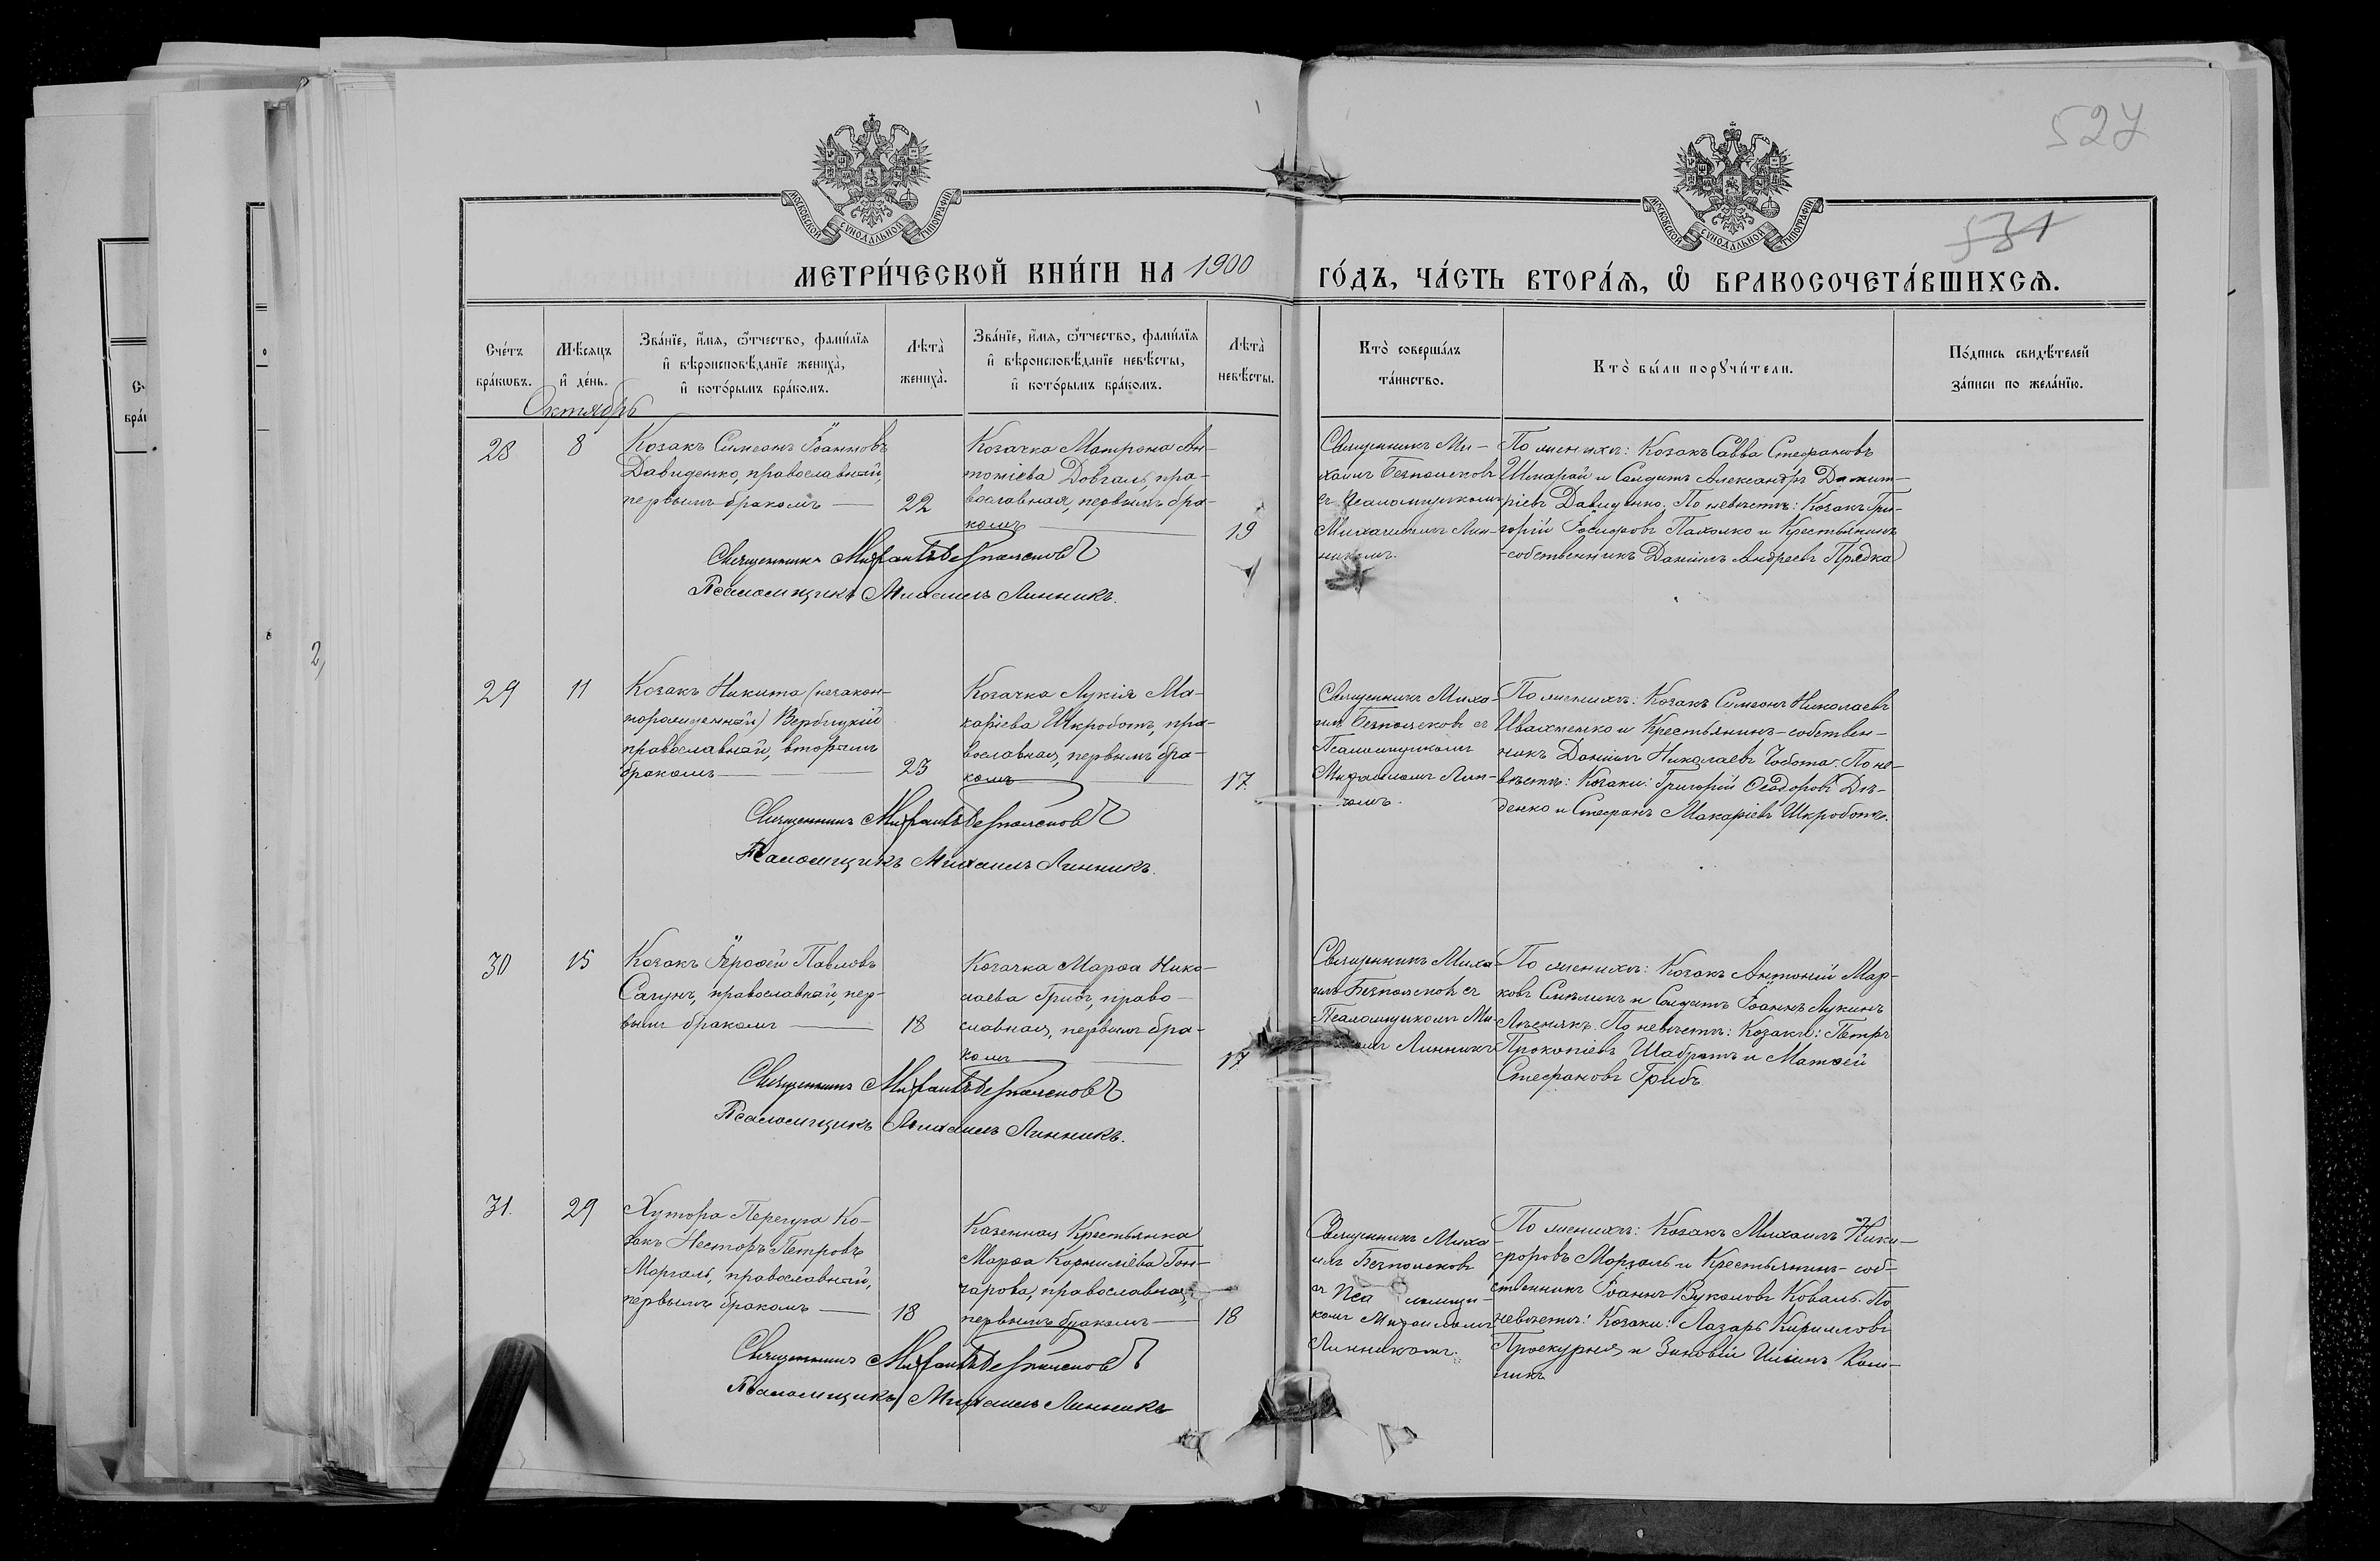 527
531
МОСКОВСКОЙ СѴНОДАЛЬНОЙ ТИПОГРАФІИ
МОСКОВСКОЙ СѴНОДАЛЬНОЙ ТИПОГРАФІИ
МЕТРИ́ЧЕСКОЙ КНИ́ГИ НА 1900 ГО́ДЪ, ЧА́СТЬ ВТОРА́Ѧ, Ѡ҆ БРАКОСОЧЕТА́ВШИХСѦ.
Сче́тъ
бра́ковъ.
Мѣ́сяцъ
и҆ де́нь.
Зва́нїе, и҆́мѧ, ѻ҆́тчество, фами́лїѧ
и҆ вѣроисповѣ́данїе жениха̀,
и҆ кото́рымъ бра́комъ.
Лѣ́та
жениха̀.
Зва́нїе, и҆́мѧ, ѻ҆́тчество, фами́лїѧ
и҆ вѣроисповѣ́данїе невѣ́сты,
и҆ кото́рымъ бра́комъ.
Лѣ́та
невѣ́сты.
Кто̀ соверша́лъ
та́инство.
Кто̀ бы́ли порꙋчи́тели.
По́дпись свидѣ́телей
за́писи по жела́нїю.
Октябрь
28
8
Козакъ Симеонъ Іоанновъ
Давиденко, православный,
первымъ бракомъ —
22
Козачка Матрона Ан-
тоніева Довгаль, пра-
вославная, первымъ бра-
комъ —
19
Священникъ Ми-
хаилъ Безполсковъ
съ Псаломщикомъ
Михаиломъ Лин-
никомъ.
По женихѣ: Козакъ Савва Стефановъ
Шмарай и Солдатъ Александръ Димит-
ріевъ Давиденко. По невѣстѣ: Козакъ Гри-
горій Пахолко и Крестьянинъ
-собственникъ Даніилъ Андреевъ Прядка
Священникъ Михаилъ Безполсковъ
Псаломщикъ Михаилъ Линникъ.
29
11
Козакъ Никита (незакон-
норожденный) Вербицкій
православный, вторымъ
бракомъ —
23
Козачка Лукія Ма-
каріева Шкроботъ, пра-
вославная, первымъ бра-
комъ
17
Священникъ Миха-
илъ Безполсковъ съ
Псаломщикомъ
Михаиломъ Лин-
комъ.
По женихѣ: Козакъ Симеонъ Николаевъ
Ивахненко и Крестьянинъ-собствен-
никъ Даніилъ Николаевъ Чобота. По не-
вѣстѣ: Козаки: Григорій Ѳеодоровъ Дѣ-
денко и Стефанъ Макаріевъ Шкроботъ.
Священникъ Михаилъ Безполсковъ
Псаломщикъ Михаилъ Линникъ.
30
15
Козакъ Іероѳей Павловъ
Сагунъ, православный, пер-
вымъ бракомъ —
18
Козачка Марѳа Нико-
лаева Грибъ, право-
славная, первымъ бра-
комъ
17
Священникъ Миха-
илъ Безполсковъ съ
Псаломщикомъ Ми-
Линникъ
По женихѣ: Козакъ Антоній Мар-
ковъ Смѣликъ и Солдатъ Іоаннъ Лукинъ
По невѣстѣ: Козаки: Петръ
Прокопіевъ Шабратъ и Матѳей
Стефановъ Грибъ
Священникъ Михаилъ Безполсковъ
Псаломщикъ Михаилъ Линникъ.
31.
29
Хутора Перегуга Ко-
закъ Несторъ Петровъ
Моргаль, православный,
первымъ бракомъ —
18
Казенная Крестьянка
Марѳа Корниліева Гон-
чарова, православная,
первымъ бракомъ —
18
Священникъ Миха-
илъ Безполсковъ
съ Псаломщи-
комъ Михаиломъ
Линникомъ.
По женихѣ: Козакъ Михаилъ Ники-
форовъ Моргаль и Крестьянинъ-соб-
ственникъ Іоаннъ Вуколовъ Коваль. По
невѣстѣ: Козаки: Лазарь Кирилловъ
Проскурня и Зиновій Иліинъ
Священникъ Михаилъ Безполсковъ
Псаломщикъ Михаилъ Линникъ